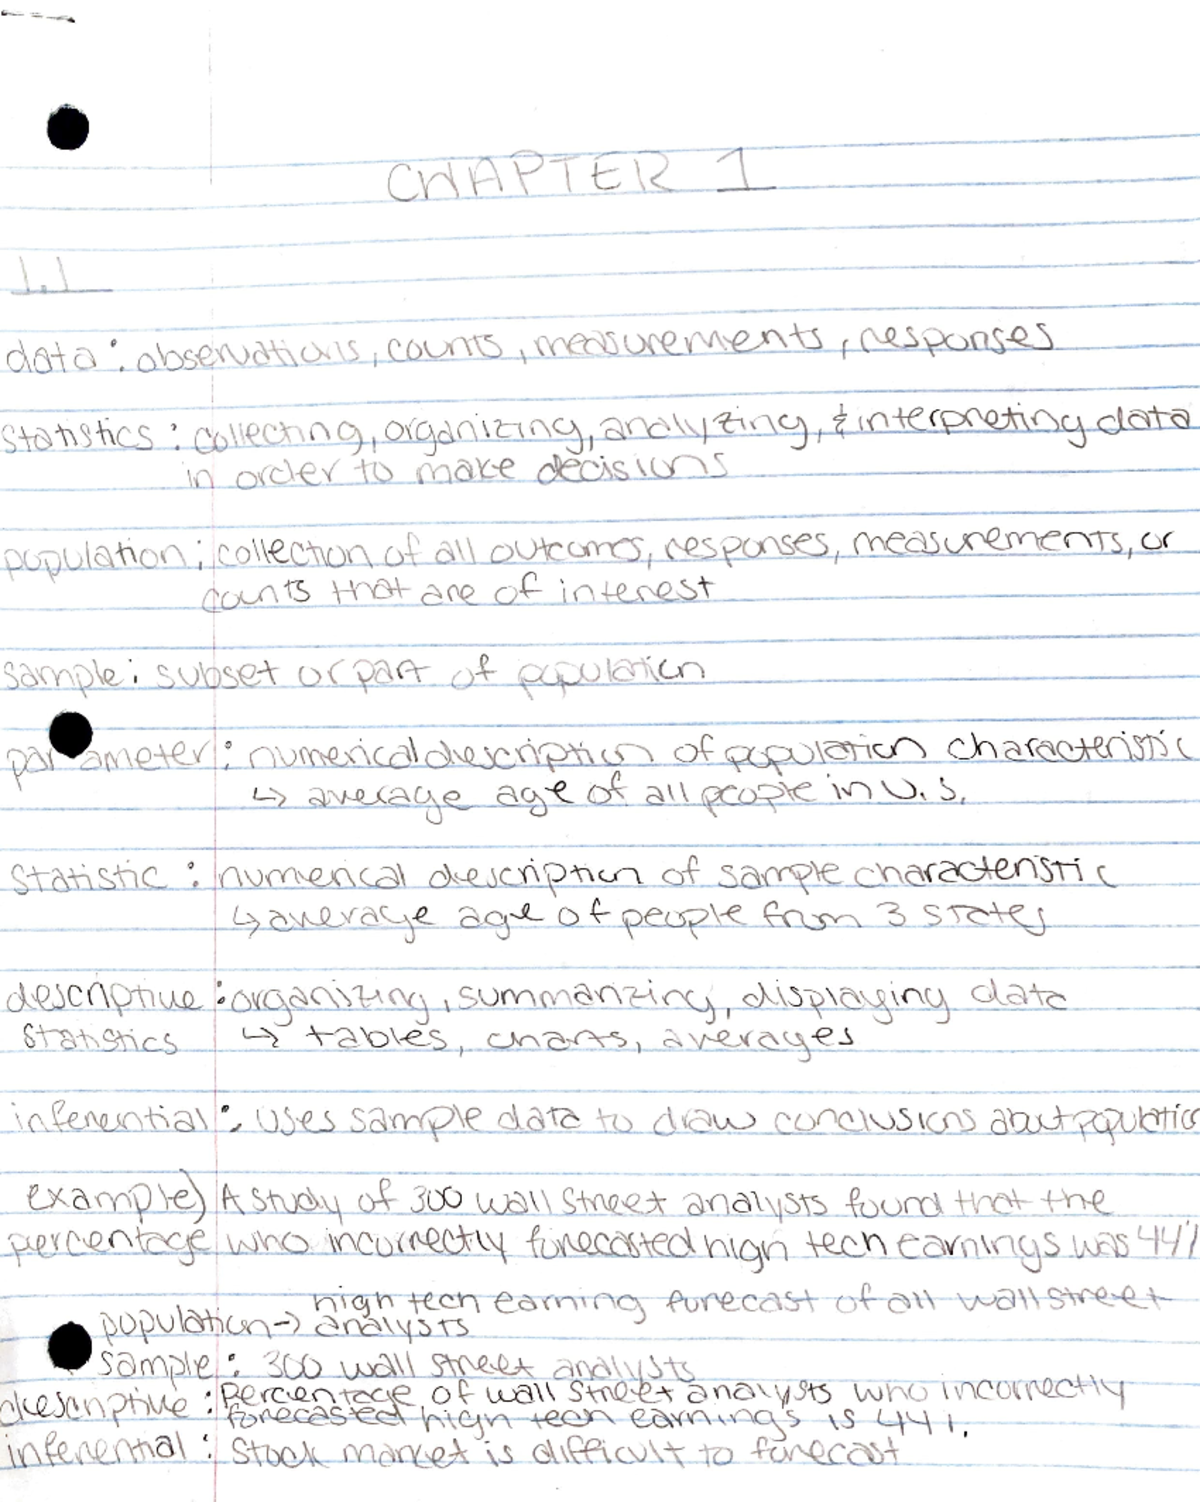 CHAPTER 1
1.1
data: observations, counts, measurements, responses
Statistics: collecting, organizing, analyzing, & interpreting data
in order to make decisions
population: collection of all outcomes, responses, measurements, or
counts that are of interest
sample: subset or part of population
parameter: numerical description of population characteristic
↳ average age of all people in U.S.
Statistic: numerical description of sample characteristic
↳ average age of people from 3 states
descriptive: organizing, summarizing, displaying data
statistics ↳ tables, charts, averages
inferential: uses sample data to draw conclusions about population
example) A study of 300 wall street analysts found that the
percentage who incorrectly forecasted high tech earnings was 44%
high tech earning forecast of all wall street
population → analysts
sample: 300 wall street analysts
descriptive: Percentage of wall street analysts who incorrectly
forecasted high tech earnings is 44%.
inferential: Stock market is difficult to forecast